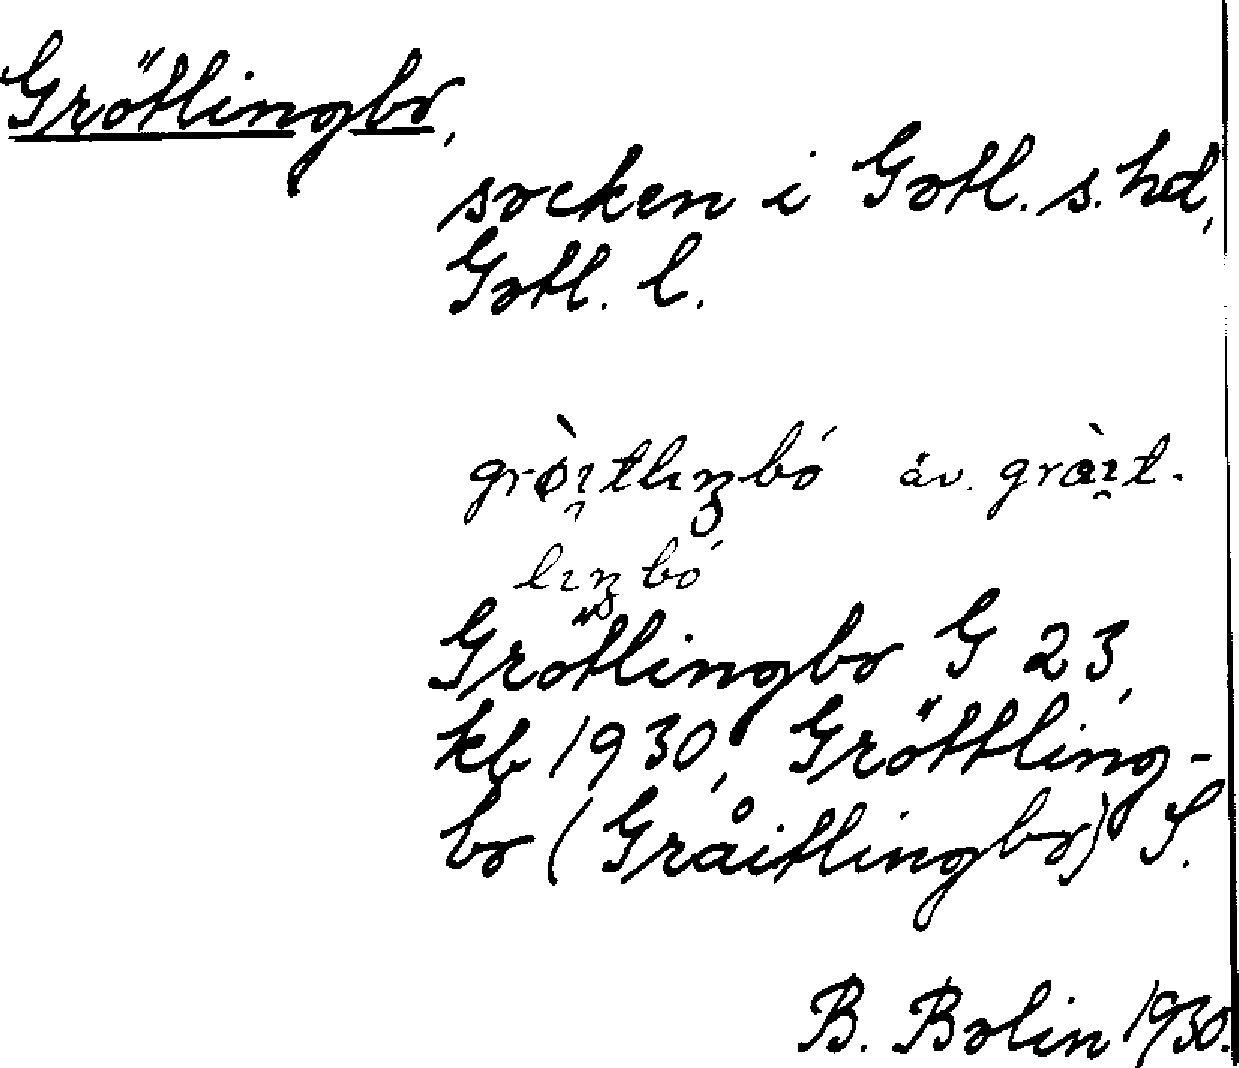 Grötlingbo,
socken i Gotl. s. hd,
Gotl. l.
grò̀ı̯tlıŋbó äv. gràı̯t-
lıŋbó
Grötlingbo G 23,
kb 1930, Gröttling-
bo (Gråitlingbo) S.
B. Bolin 1930.